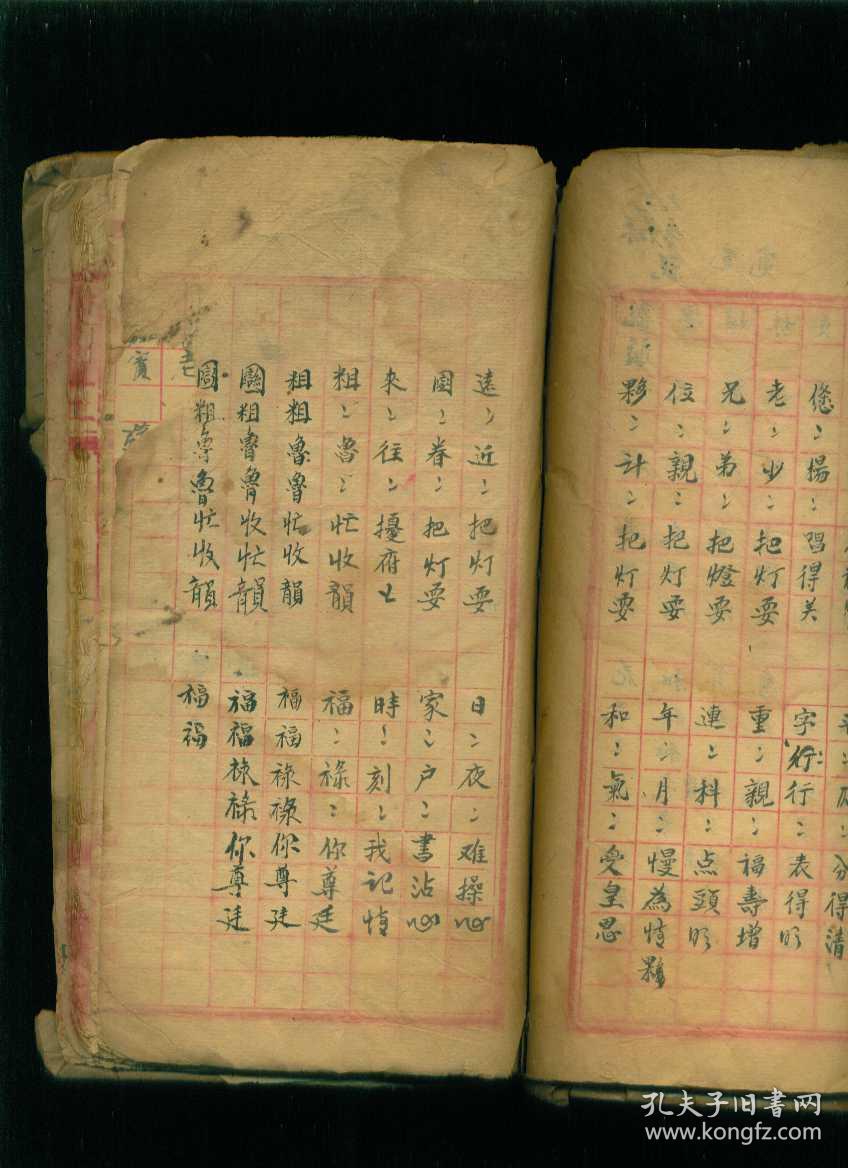 您〻揚〻唱得美 字〻行〻行〻表得明
老〻少〻把灯耍 重〻親〻福壽增
兄〻弟〻把燈耍 連〻科〻点頭明
位〻親〻把灯耍 年〻月〻慢為情
夥〻计〻把灯耍 和〻氣〻受皇恩
遠〻近〻把灯耍 日〻夜〻难操心
圍〻眷〻把灯耍 家〻户〻書沾心
来〻往〻擾府上 時〻刻〻我记情
粗〻魯〻忙收韻 福〻禄〻你尊廷
粗粗魯魯忙收韻 福福禄禄你尊廷
粗魯魯收忙韻 福福禄禄你尊廷
粗魯魯忙收韻 福福
寳
孔夫子旧书网
www.kongfz.com